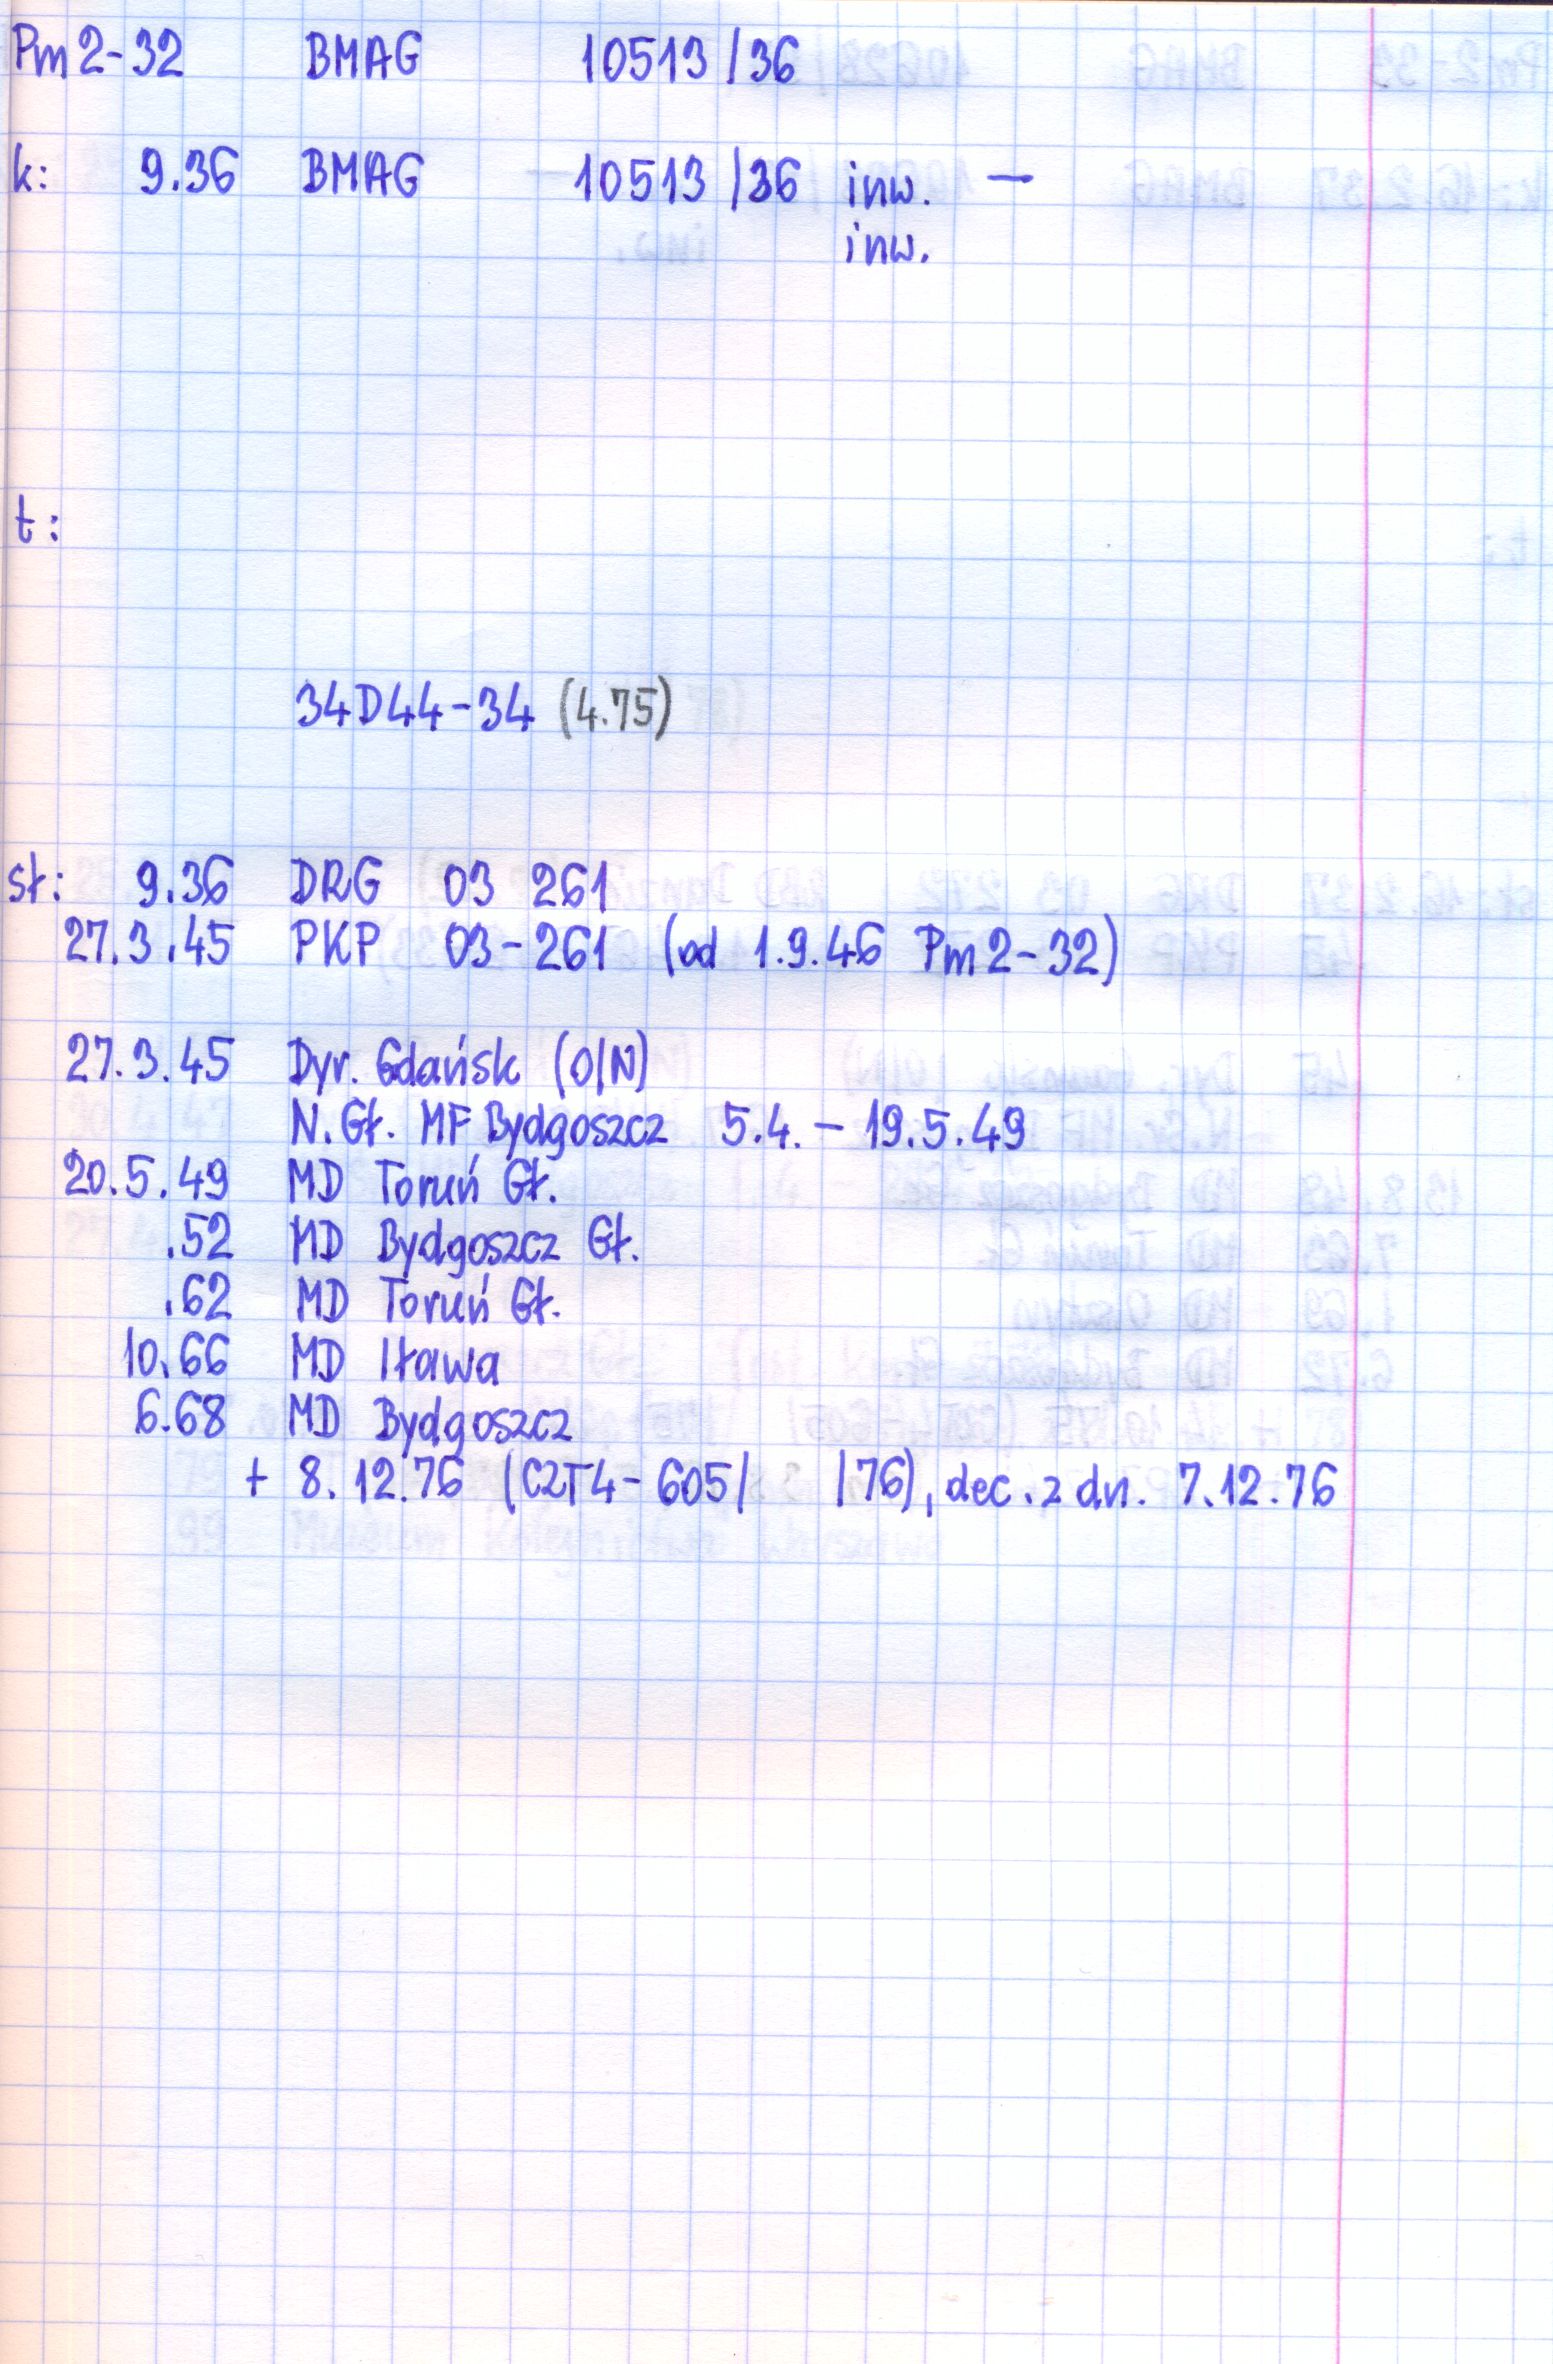 Pm2-32 BMAG 10513/36
k: 9.36 BMAG 10513/36 inw. —
inw.
t:
34D44-34 (4.75)
sł: 9.36 DRG 03 261
27.3.45 PKP 03-261 (od 1.9.46 Pm2-32)
27.3.45 Dyr. Gdańsk (O/N)
N.Gł. MF Bydgoszcz 5.4. – 19.5.49
20.5.49 MD Toruń Gł.
.52 MD Bydgoszcz Gł.
.62 MD Toruń Gł.
10.66 MD Iława
6.68 MD Bydgoszcz
+ 8.12.76 (CZT4-605/ /76), dec. z dn. 7.12.76